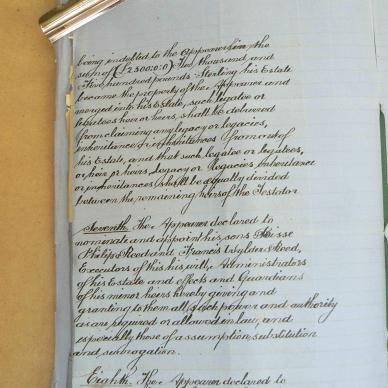 being indebted to the Appearer in the
sum of (£2500:0:0) Two thousand and
Five hundred pounds Sterling his Estate
became the property of the Appearer and
merged into his Estate, such legatee or
legatees heir or heirs, shall be debarred
from claiming any legacy or legacies,
inheritance or inheritances from out of
his Estate, and that such legatee or legatees,
or heir or heirs, legacy or legacies inheritance
or inheritances shall be equally divided
between the remaining heirs of the Testator
Seventh The Appearer declared to
nominate and appoint his sons
Philip Reed and Francis Wylder Reed,
Executors of this his will, Administrators
of his Estate and effects and Guardians
of his minor heirs hereby giving and
granting to them all such power and authority
as are required or allowed in law, and
especially those of assumption, substitution
and surrogation.
Eighth The Appearer declared to